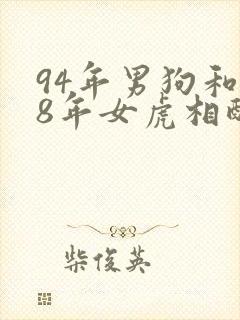 94年男狗和
8年女虎相配
柴俊英